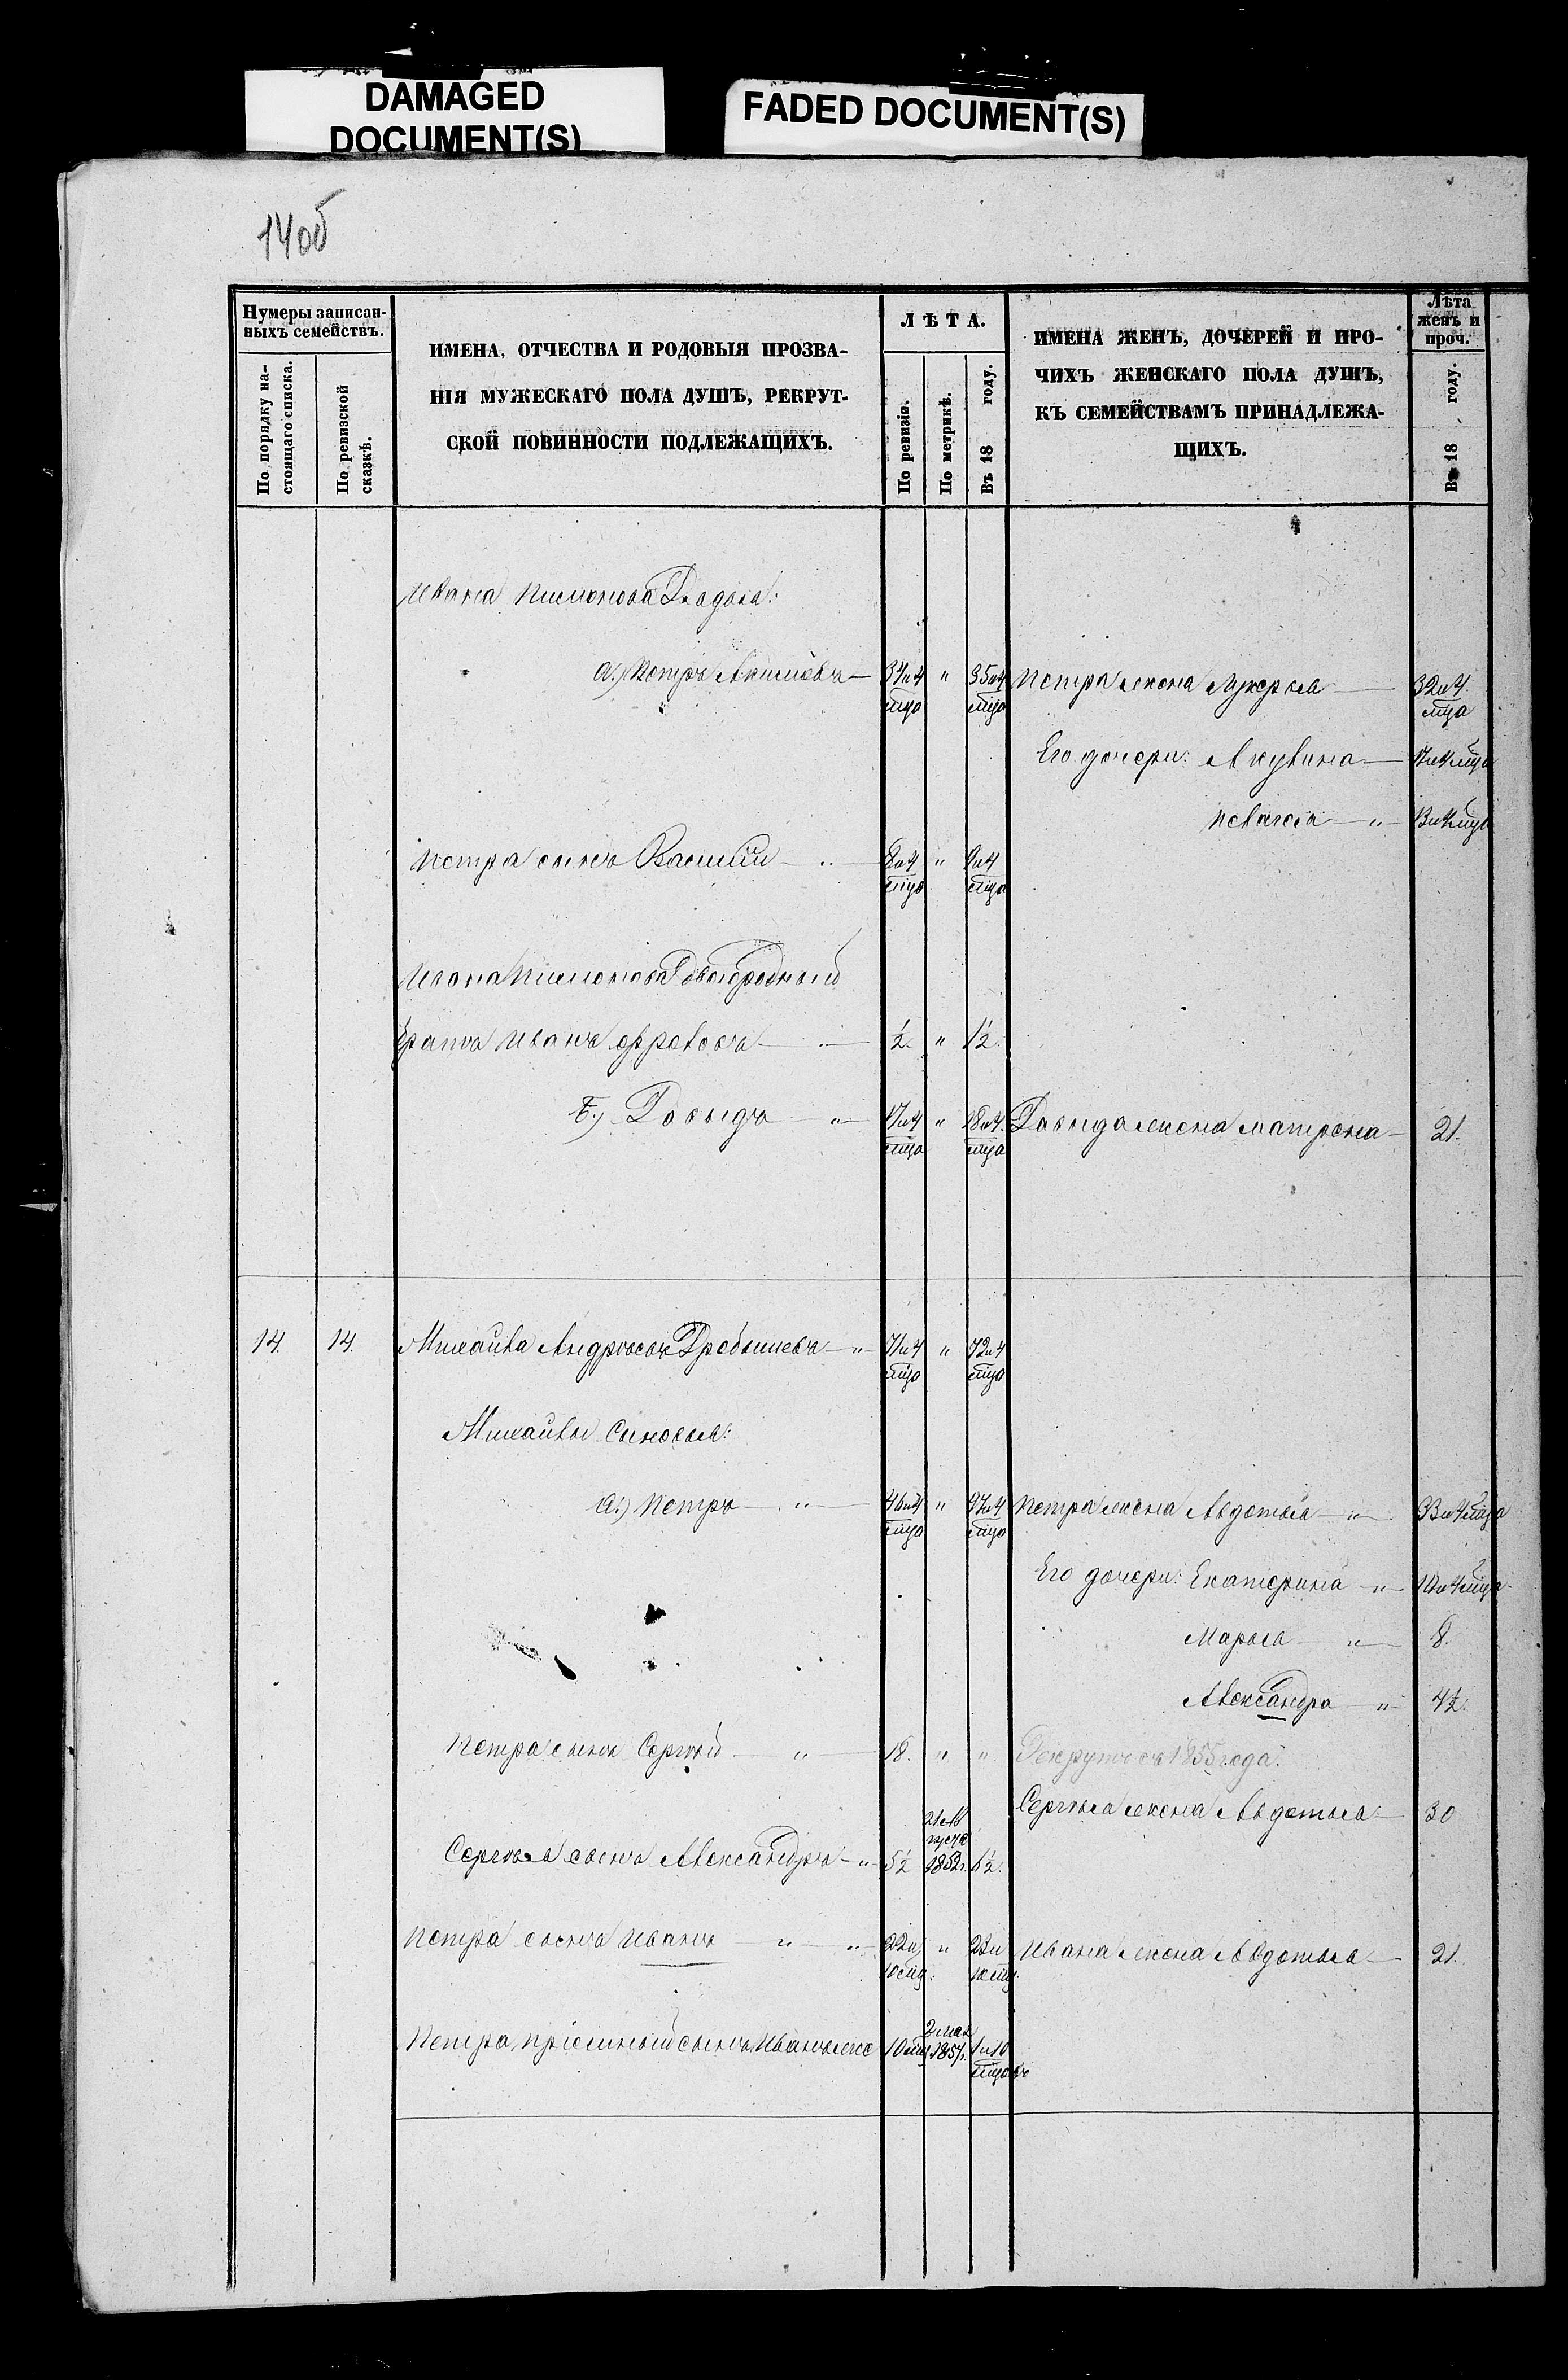 DAMAGED
DOCUMENT(S)
FADED DOCUMENT(S)
14об
Нумеры записан-
ныхъ семействъ.
По порядку на-
стоящаго списка.
По ревизской
сказкѣ.
ИМЕНА, ОТЧЕСТВА И РОДОВЫЯ ПРОЗВА-
НІЯ МУЖЕСКАГО ПОЛА ДУШЪ, РЕКРУТ-
СКОЙ ПОВИННОСТИ ПОДЛЕЖАЩИХЪ.
ЛѢТА.
По ревизіи.
По метрикѣ.
Въ 18 году.
ИМЕНА ЖЕНЪ, ДОЧЕРЕЙ И ПРО-
ЧИХЪ ЖЕНСКАГО ПОЛА ДУШЪ,
КЪ СЕМЕЙСТВАМЪ ПРИНАДЛЕЖА-
ЩИХЪ.
Лѣта
женъ и
проч.
Въ 18 году.
Ивана Пимонова Дядья:
а.) Петръ Акимовъ — 34и4 мца " 35и4 мца Петра жена Лукерья — 32и4 мца
Его дочери: Акулина — 17и4мца
Пелагея — " — 13и4мца
Петра сынъ Василій — " — 8и4 мца " 9и4 мца
Ивана Пимонова Двоюродный
Братъ Иванъ — " — ½. " 1½.
б.) Давыдъ — " — 17и4 мца " 18и4 мца Давыда жена Матрена — 21.
14. 14. Михайла Андреевъ — " — 71и4 мца " 72и4 мца
Михайлы Сыновья:
а.) Петръ — " — 46и4 мца " 47и4 мца Петра жена Авдотья — " — 33и4мца
Его дочери: Екатерина — " — 10и4мца
Марья — " — 8.
Александра — " — 4½.
Петра сынъ Сергѣй — " — 18. " " Рекрутъ съ 1855 года.
Сергѣя жена Авдотья — 30
Сергѣя сынъ Александръ — " — 5½ 1852г. 6½.
Петра сынъ Иванъ — " — " — 22и 10мц. " 23и 10мц. Ивана жена Авдотья — 21.
Петра пріемный сынъ Иванъ же 10мц 2 мая 1857г. 1и10 мцовъ